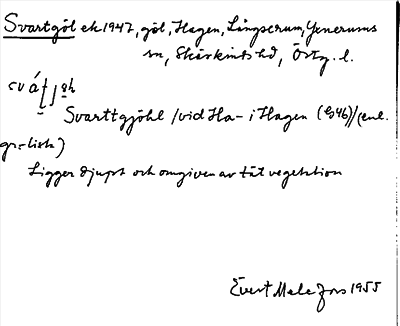 Svartgöl ek 1947, göl, Hagen, Långserum, Yxnerums
sn, Skärkinds hd, Östg. l.
Svarttgjöhl /vid Ha- i Hagen (G46)/(enl.
gr.-lista)
Ligger djupt och omgiven av tät vegetation
Evert Melefors 1955